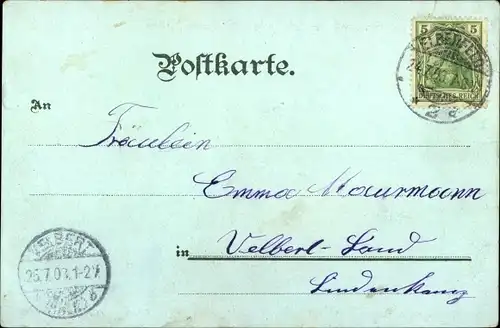 5
ELBERFELD
DEUTSCHES REICH
Postkarte.
An
Fräulein
Emma Maurmann
in Velbert-Land
Lindenkamp
VELBERT
25.7.03.1-2V